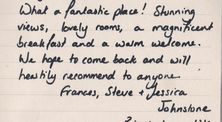 What a fantastic place! Stunning
views, lovely rooms, a magnificent
breakfast and a warm welcome.
We hope to come back and will
heartily recommend to anyone.
Frances, Steve + Jessica
Johnstone